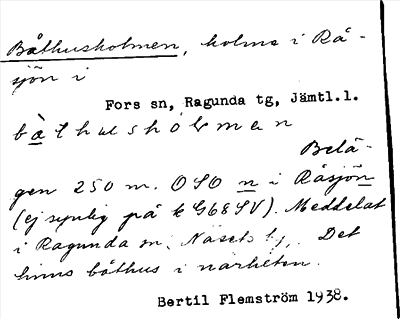 Båthusholmen, holme i Rå-
sjön i
Fors sn, Ragunda tg, Jämtl.l.
båthushòlmen
Belä-
gen 250 m. OSO n i Råsjön
(ej synlig på k G68SV). Meddelat
i Ragunda sn, Näsets by. Det
finns båthus i närheten.
Bertil Flemström 1938.